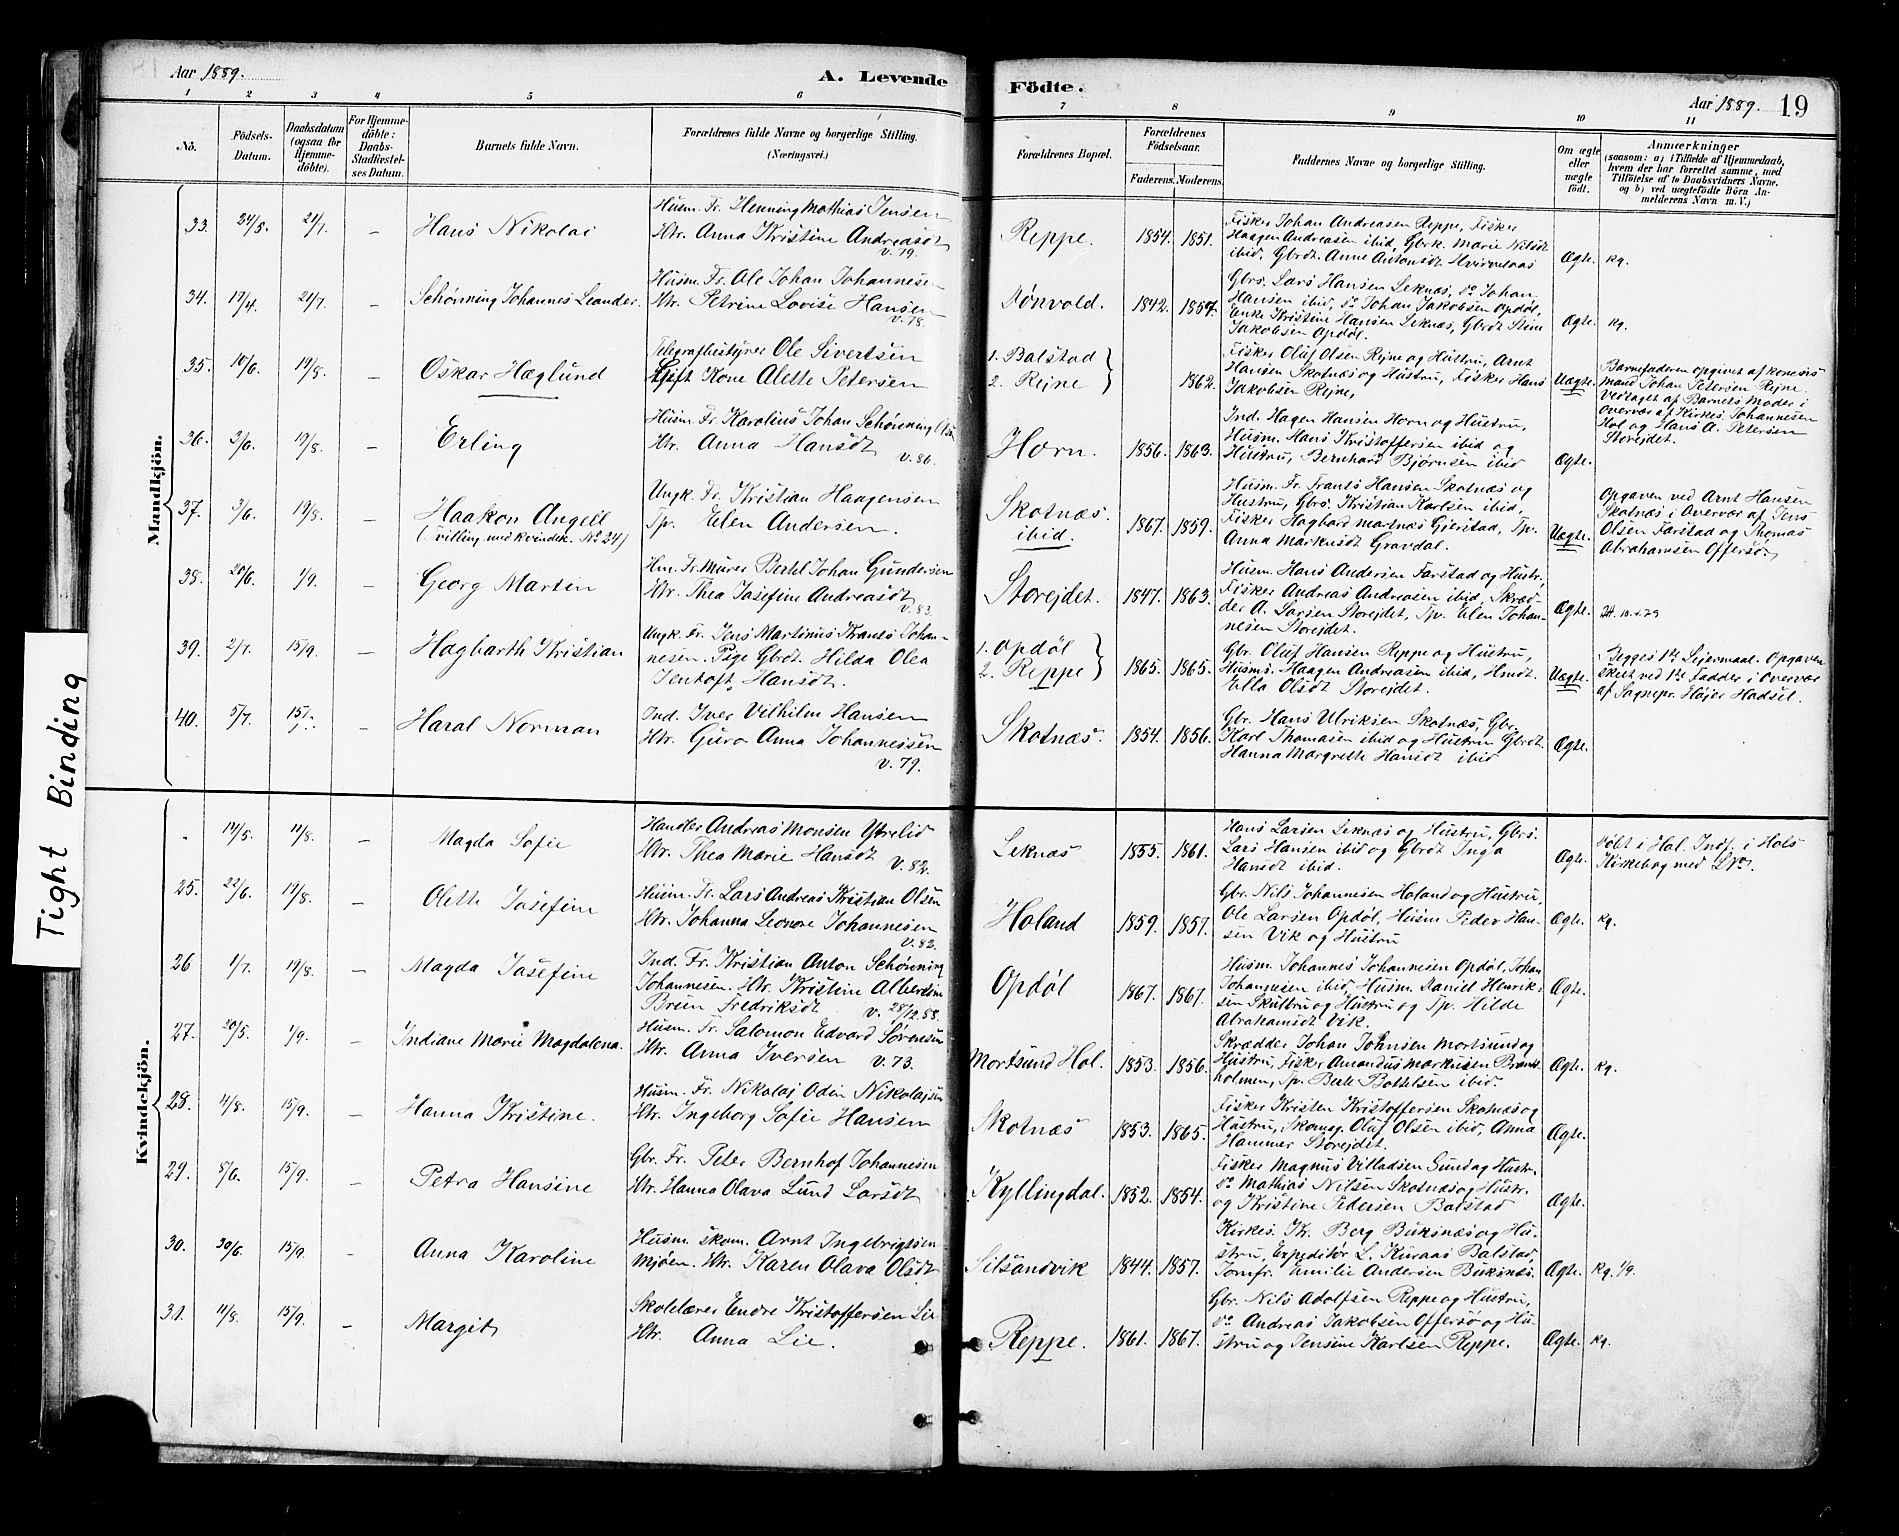 Aar 1889.
A. Levende
Födte.
Aar 1889. 19
1 2 3 4 5 6 7 8 9 10 11
No.
Födsels-Datum.
Daabsdatum (ogsaa for Hjemmedöbte).
For Hjemmedöbte: Daabs-Stadfæstelses Datum.
Barnets fulde Navn.
Forældrenes fulde Navne og borgerlige Stilling. (Næringsvei.)
Forældrenes Bopæl.
Forældrenes Födselsaar.
Faderens. Moderens.
Faddernes Navne og borgerlige Stilling.
Om ægte eller uægte födt.
Anmærkninger
(saasom: a) i Tilfælde af Hjemmedaab,
hvem der har forrettet samme, med
Tilföielse af to Daabsvidners Navne.
og b) ved uægtefödte Börn Anmelderens Navn m. V.)
Tight Binding
Mandkjön.
33. 24/5. 21/7. – Hans Nikolai
Husm. Fr. Henning Mathias Jensen
Htr. Anna Kristine Andreasdt
v. 79.
Reppe. 1854. 1851.
Fisker Johan Andreasen Reppe, Fisker
Haagen Andreasen ibid, Gbrk. Marie Nilsdt
ibid, Gbrdt. Anne Antonsdt
Ægte. Kg.
34. 19/4. 21/7. – Schønning Johannes Leander.
Husm. Fr. Ole Johan Johannesen
Htr. Petrine Lovise Hansen
v. 78.
Tønvold. 1842. 1857.
Gbrs. Lars Hansen Leknæs, do Johan
Hansen ibid, do Johan Jakobsen Opdøl,
Enke Kristine Hansen Leknæs, Gbrdt Stine
Jakobsen Opdøl.
Ægte. Kg.
35. 10/6. 19/8. – Oskar Hæglund
Telegrafbestyrer Ole Sivertsen
Gift Kone Alette Petersen
1. Balstad
2. Rejne
1862.
Fisker Oluf Olsen Rejne og Hustru, Arnt
Hansen Skotnæs og Hustru, Fisker Hans
Jakobsen Rejne,
Uægte.
Barnefaderen opgivet af konens
mand Johan Petersen Rejne
Vedtaget af Barnets Moder i
Overvær af Kirkes. Johannesen
Hol og Hans A. Petersen
Storejdet.
36. 3/6. 19/8. – Erling
Husm. Fr. Karolius Johan Schønning
Htr. Anna Hansdt
v. 86.
Horn. 1856. 1863.
Ind. Hagen Hansen Horn og Hustru,
Husm. Hans Kristoffersen ibid og
Hustru, Bernhard Bjørnsen ibid
Ægte.
37. 3/6. 19/8. – Haakon Angell
(Tvilling med Kvindek. No 24)
Ungk. Fr. Kristian Haagensen
Tp. Elen Andersen.
Skotnæs.
ibid.
1867. 1859.
Husm. Fr. Frants Hansen Skotnæs og
Hustru, Gbrs. Kristian Karlsen ibid,
Fisker Hagbard Martnæs Gjerstad, Tp.
Anna Markusdt Gravdal.
Uægte.
Opgaven ved Arnt Hansen
Skotnæs i Overvær af Jens
Olsen Farstad og Thomas
Abrahamsen Offersø,
38. 20/6. 1/9. – Georg Martin
Hm. Fr. Murer Bertel Johan Gundersen
Htr. Thea Jasefine Andreasdt
v. 83.
Storejdet. 1847. 1863.
Husm. Hans Andersen Farstad og Hustr.
Fisker Andreas Andreasen ibid, Skrædder
A. Larsen Storejdet, Tp. Elen Johannesen
Storejdet.
Ægte.
39. 2/7. 15/9. – Hagbarth Kristian
Ungk. Fr. Jens Martinus Krants Johannesen.
Pige Gbrdt. Hilda Olea
Jentoft Hansdt.
1. Opdøl
2. Reppe
1865. 1865.
Gbr. Oluf Hansen Reppe og Hustru,
Husms. Haagen Andreasen ibid, Hmdt.
Ulla Olsdt Storejdet.
Uægte.
Begges 1ste Leiermaal. Opgaven
skeet ved 1ste Fadder i Overvær
af Sognepr. Højer Hadsel.
40. 5/7. 15/9. Haral Norman
Ind. Iver Vilhilm Hansen
Htr. Guro Anna Johannessen
v. 79.
Skotnæs. 1854. 1856.
Gbr. Hans Ulriksen Skotnæs, Gbr.
Karl Thomasen ibid og Hustru Gbrdt.
Hanna Margrethe Hansdt ibid
Ægte.
Kvindekjön.
- 12/5. 19/8. – Magda Sofie
Handler Andreas Monsen Ytrelid
Htr. Thea Marie Hansdt v. 82.
Leknæs 1855. 1861.
Hans Larsen Leknæs og Hustru, Gbrs.
Lars Hansen ibid og Gbrdt Inga
Hansdt ibid.
Ægte.
Døbt i Hol. Indf. i Hols
Kirkebog med No.
25. 22/6. 19/8. – Olette Jasefine
Husm. Fr. Lars Andreas Kristian Olsen
Htr. Johanna Leonore Johannesen
v. 82.
Holand 1859. 1857.
Gbr. Nils Johannesen Holand og Hustru,
Ole Larsen Opdøl, Husm Peder Hansen
Vik og Hustru
Ægte. Kg.
26 1/7. 19/8. – Magda Jasefine
Ind. Fr. Kristian Anton Schønning
Johannesen. Htr. Kristine Albertine
Breun Fredriksdt v. 28/12.88.
Opdøl 1867. 1867.
Husm. Johannes Johannesen Opdøl, Johan
Johannesen ibid, Husm. Daniel Henriksen
Skulbru og Hustru og Tp. Hilde
Abrahamsdt Vik.
Ægte.
27. 20/5. 1/9. – Indiane Marie Magdalena.
Husm. Fr. Salomon Edvard Sørensen
Htr. Anna Iversen v. 73.
Mortsund Hol. 1853. 1856.
Skrædder Johan Johnsen Mortsund og
Hustru, Fisker Amandus Markusen Brandsholmen,
Tp. Berte Bottelsen ibid.
Ægte. Kg.
28. 11/8. 15/9. – Hanna Kristine.
Husm. Fr. Nikolaj Odin Nikolajsen
Htr. Ingeborg Sofie Hansen
Skotnæs 1853. 1865.
Fisker Kristen Kristoffersen Skotnæs og
Hustru, Skomag. Oluf Olsen ibid, Anna
Hammer Storejdet.
Ægte.
29. 8/6. 15/9. – Petra Hansine
Gbr. Fr. Peter Bernhof Johannesen
Htr. Hanna Olava Lund Larsdt
Kyllingdal. 1852. 1854.
Fisker Magnus Villadsen Sund og Hustr.
do Mathias Nilsen Skotnæs og Hustr.
og Kristine Pedersen Balstad
Ægte.
30. 30/6. 15/9. – Anna Karoline
Husm. skom. Arnt Ingebrigtsen
Mjøen. Htr. Karen Olava Olsdt
Silsandvik 1844. 1857.
Kirkes. Kr. Berg Buksnæs og Hustru,
Expeditør L. Kuraas Balstad,
Jomfr. Emilie Andersen Buksnæs.
Ægte. Kg. 1/9.
31. 11/8. 15/9. – Margit
Skolelærer Endre Kristoffersen Lie
Htr. Anna Lie.
Reppe. 1861. 1867.
Gbr. Nils Adolfsen Reppe og Hustru,
do Andreas Jakobsen Offersø og Hustru
og Jensine Karlsen Reppe.
Ægte. Kg.